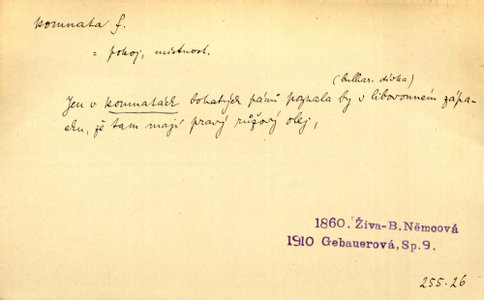 komnata f.
= pokoj, místnost.
(bulhar. dívka)
Jen v komnatách bohatých pánů poznala by v libovonném zápa-
chu, že tam mají pravý růžový olej,
1860. Živa-B. Němcová
1910 Gebauerová, Sp. 9.
255.26